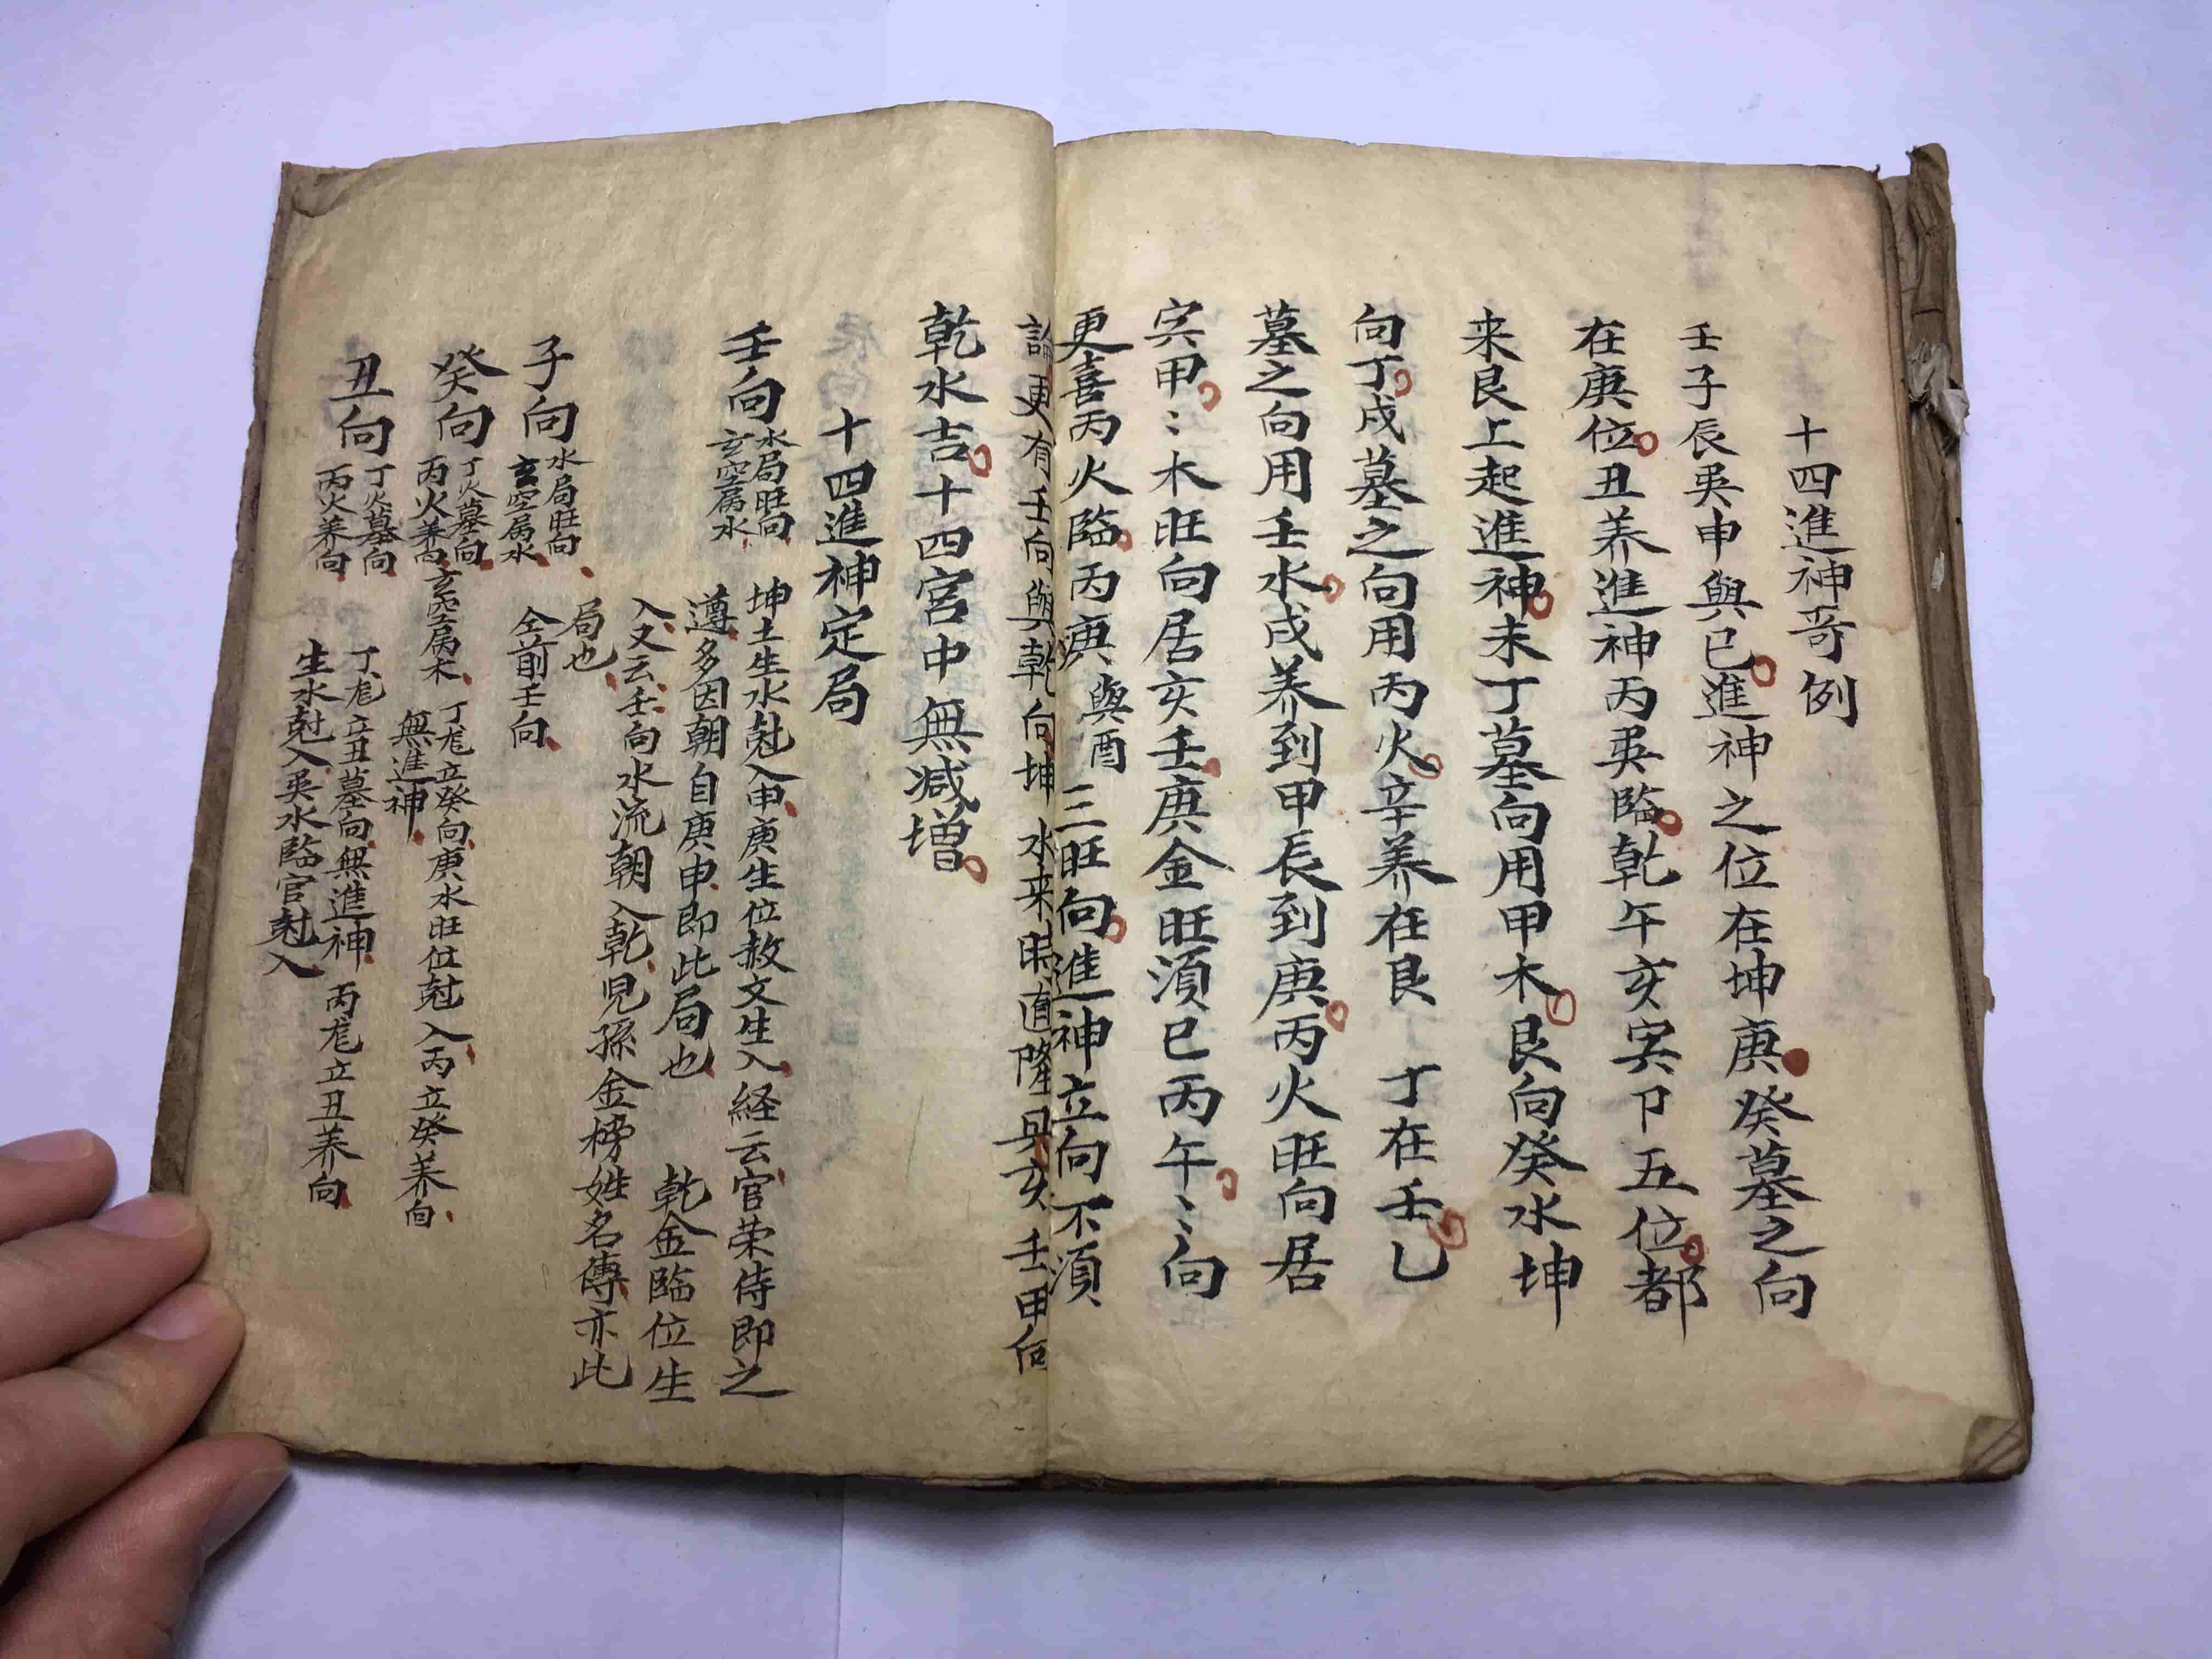 十四進神哥例
壬子辰巽申與巳進神之位在坤庚癸墓之向
在庚位丑养進神丙巽臨乾午亥寅卩五位都
来艮上起進神未丁墓向用甲木艮向癸水坤
向丁戌墓之向用丙火辛养在艮丁在壬乙
墓之向用壬水戌养到甲辰到庚丙火旺向居
寅甲〻木旺向居亥壬庚金旺須巳丙午〻〻向
更喜丙火臨丙庚與酉三旺向進神立向不須
論更有壬向與乾向坤水来時直隆與亥壬甲向
乾水吉十四宮中無減增
十四進神定局
壬向
水局旺向
玄空属水
坤土生水尅入申庚生位赦文生入経云官荣侍即之
遵多因朝自庚申即此局也乾金臨位生
入又云壬向水流朝入乾児孫金榜姓名傳亦此
局也
子向
水局旺向
玄空属水
仝前壬向
癸向
丁火墓向
丙火养向
玄空属木
丁龙立癸向庚水旺位尅入丙立癸养向
無進神
丑向
丁火墓向
丙火养向
丁龙立丑墓向無進神丙龙立丑养向
生水尅入巽水臨官尅入